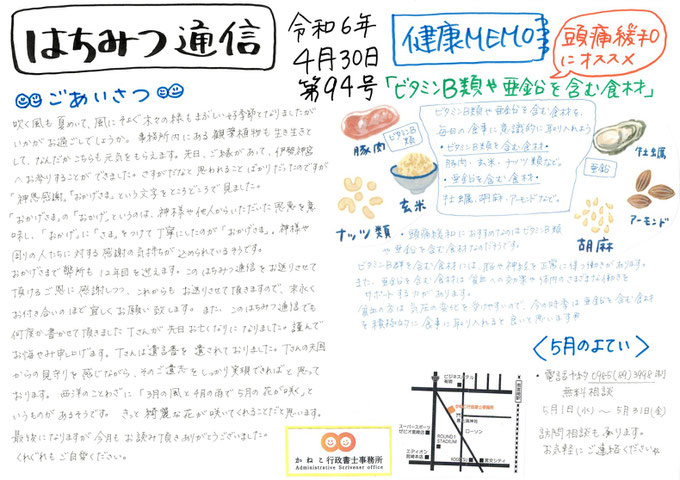 はちみつ通信
令和6年
4月30日
第94号
健康MEMO
頭痛緩和
にオススメ
「ビタミンB類や亜鉛を含む食材」
ごあいさつ
吹く風も夏めいて、風にそよぐ木々の緑もまぶしい好季節となりましたが
いかがお過ごしでしょうか。事務所内にある観葉植物も生き生きと
して、なんだかこちらも元気をもらえます。先日、ご縁があって、伊勢神宮
へお参りすることができました。さすがだなと思われることばかりだったのですが
「神恩感謝。「おかげさま」という文字をところどころで見ました。
「おかげさま」の「おかげ」というのは、神様や他人からいただいた恩恵を意
味し、「おかげ」に「さま」をつけて丁寧にしたのが「おかげさま」。神様や
周りの人たちに対する感謝の気持ちが込められているそうです。
おかげさまで弊所も12年目を迎えます。このはちみつ通信をお送りさせて
頂けるご恩に感謝しつつ、これからもお送りさせて頂きますので、末永く
お付き合いのほど宜しくお願い致します。また、このはちみつ通信でも
何度か書かせて頂きましたTさんが先日お亡くなりになりました。謹んで
お悔やみ申し上げます。Tさんは遺言書を遺されておりました。Tさんの天国
からの見守りを感じながら、そのご遺志をしっかり実現できればと思って
おります。西洋のことわざに「3月の風と4月の雨で5月の花が咲く」と
いうものがあるそうです。きっと綺麗な花が咲いてくれることだと思います。
最後になりますが今月もお読み頂きありがとうございました。
くれぐれもご自愛ください。
豚肉
ビタミンB
類
玄米
ナッツ類
ビタミンB類や亜鉛を含む食材を、
毎日の食事に意識的に取り入れよう
・ビタミンB類を含む食材・
豚肉・玄米・ナッツ類など。
・亜鉛を含む食材・
牡蠣・胡麻・アーモンドなど。
亜鉛
牡蠣
アーモンド
胡麻
・頭痛緩和におすすめなのはビタミンB類
や亜鉛を含む食材なのだそうです。
ビタミンB群を含む食材には、脳や神経を正常に保つ働きがあります。
また、亜鉛を含む食材は
サポートする力があります。
を積極的に食事に取り入れると良いと思います
〈5月のよてい〉
・電話予約 0985(89)3998 制
無料相談
5月1日(水)〜5月31日(金)
訪問相談も承ります。
お気軽にご連絡ください。
かねこ行政書士事務所
Administrative Scrivener office
ビジネスホテル
かねこ行政書士事務所
ローソン
スーパースポーツ
ゼビオ宮崎店
ROUND1
STADIUM
エディオン
宮崎本店
宮交シティ